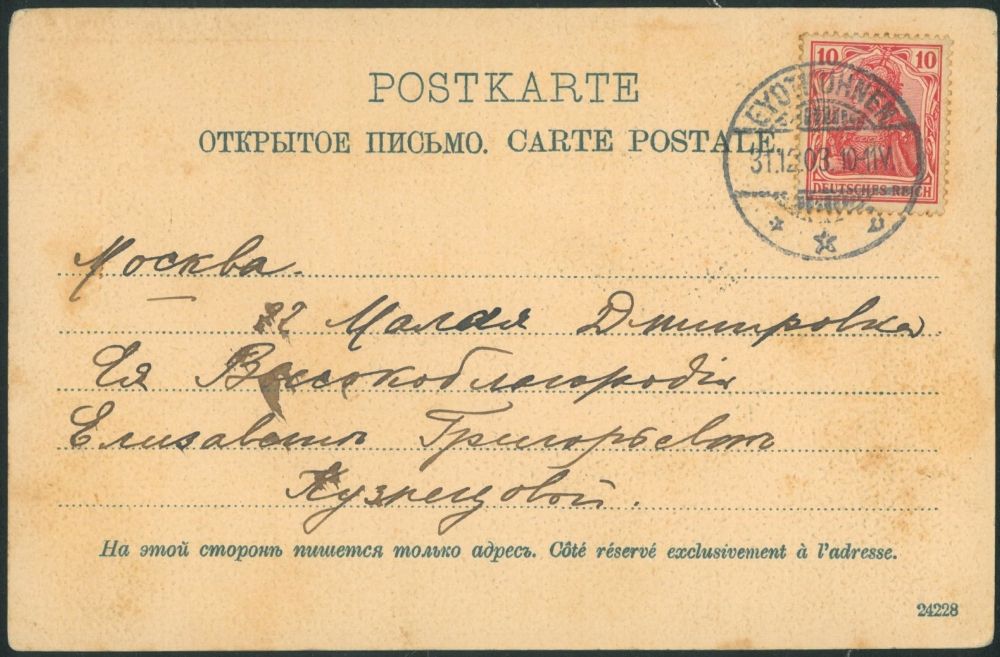 POSTKARTE
ОТКРЫТОЕ ПИСЬМО. CARTE POSTALE.
10 10
DEUTSCHES REICH
EYDTKUHNEN
31.12.03. 10-11V.
Москва.
22 Малая Дмитровка
Ея Высокоблагородія
Елизавета Григорьевт
Кузнецовой.
На этой сторонѣ пишется только адресъ. Côté réservé exclusivement à l'adresse.
24228